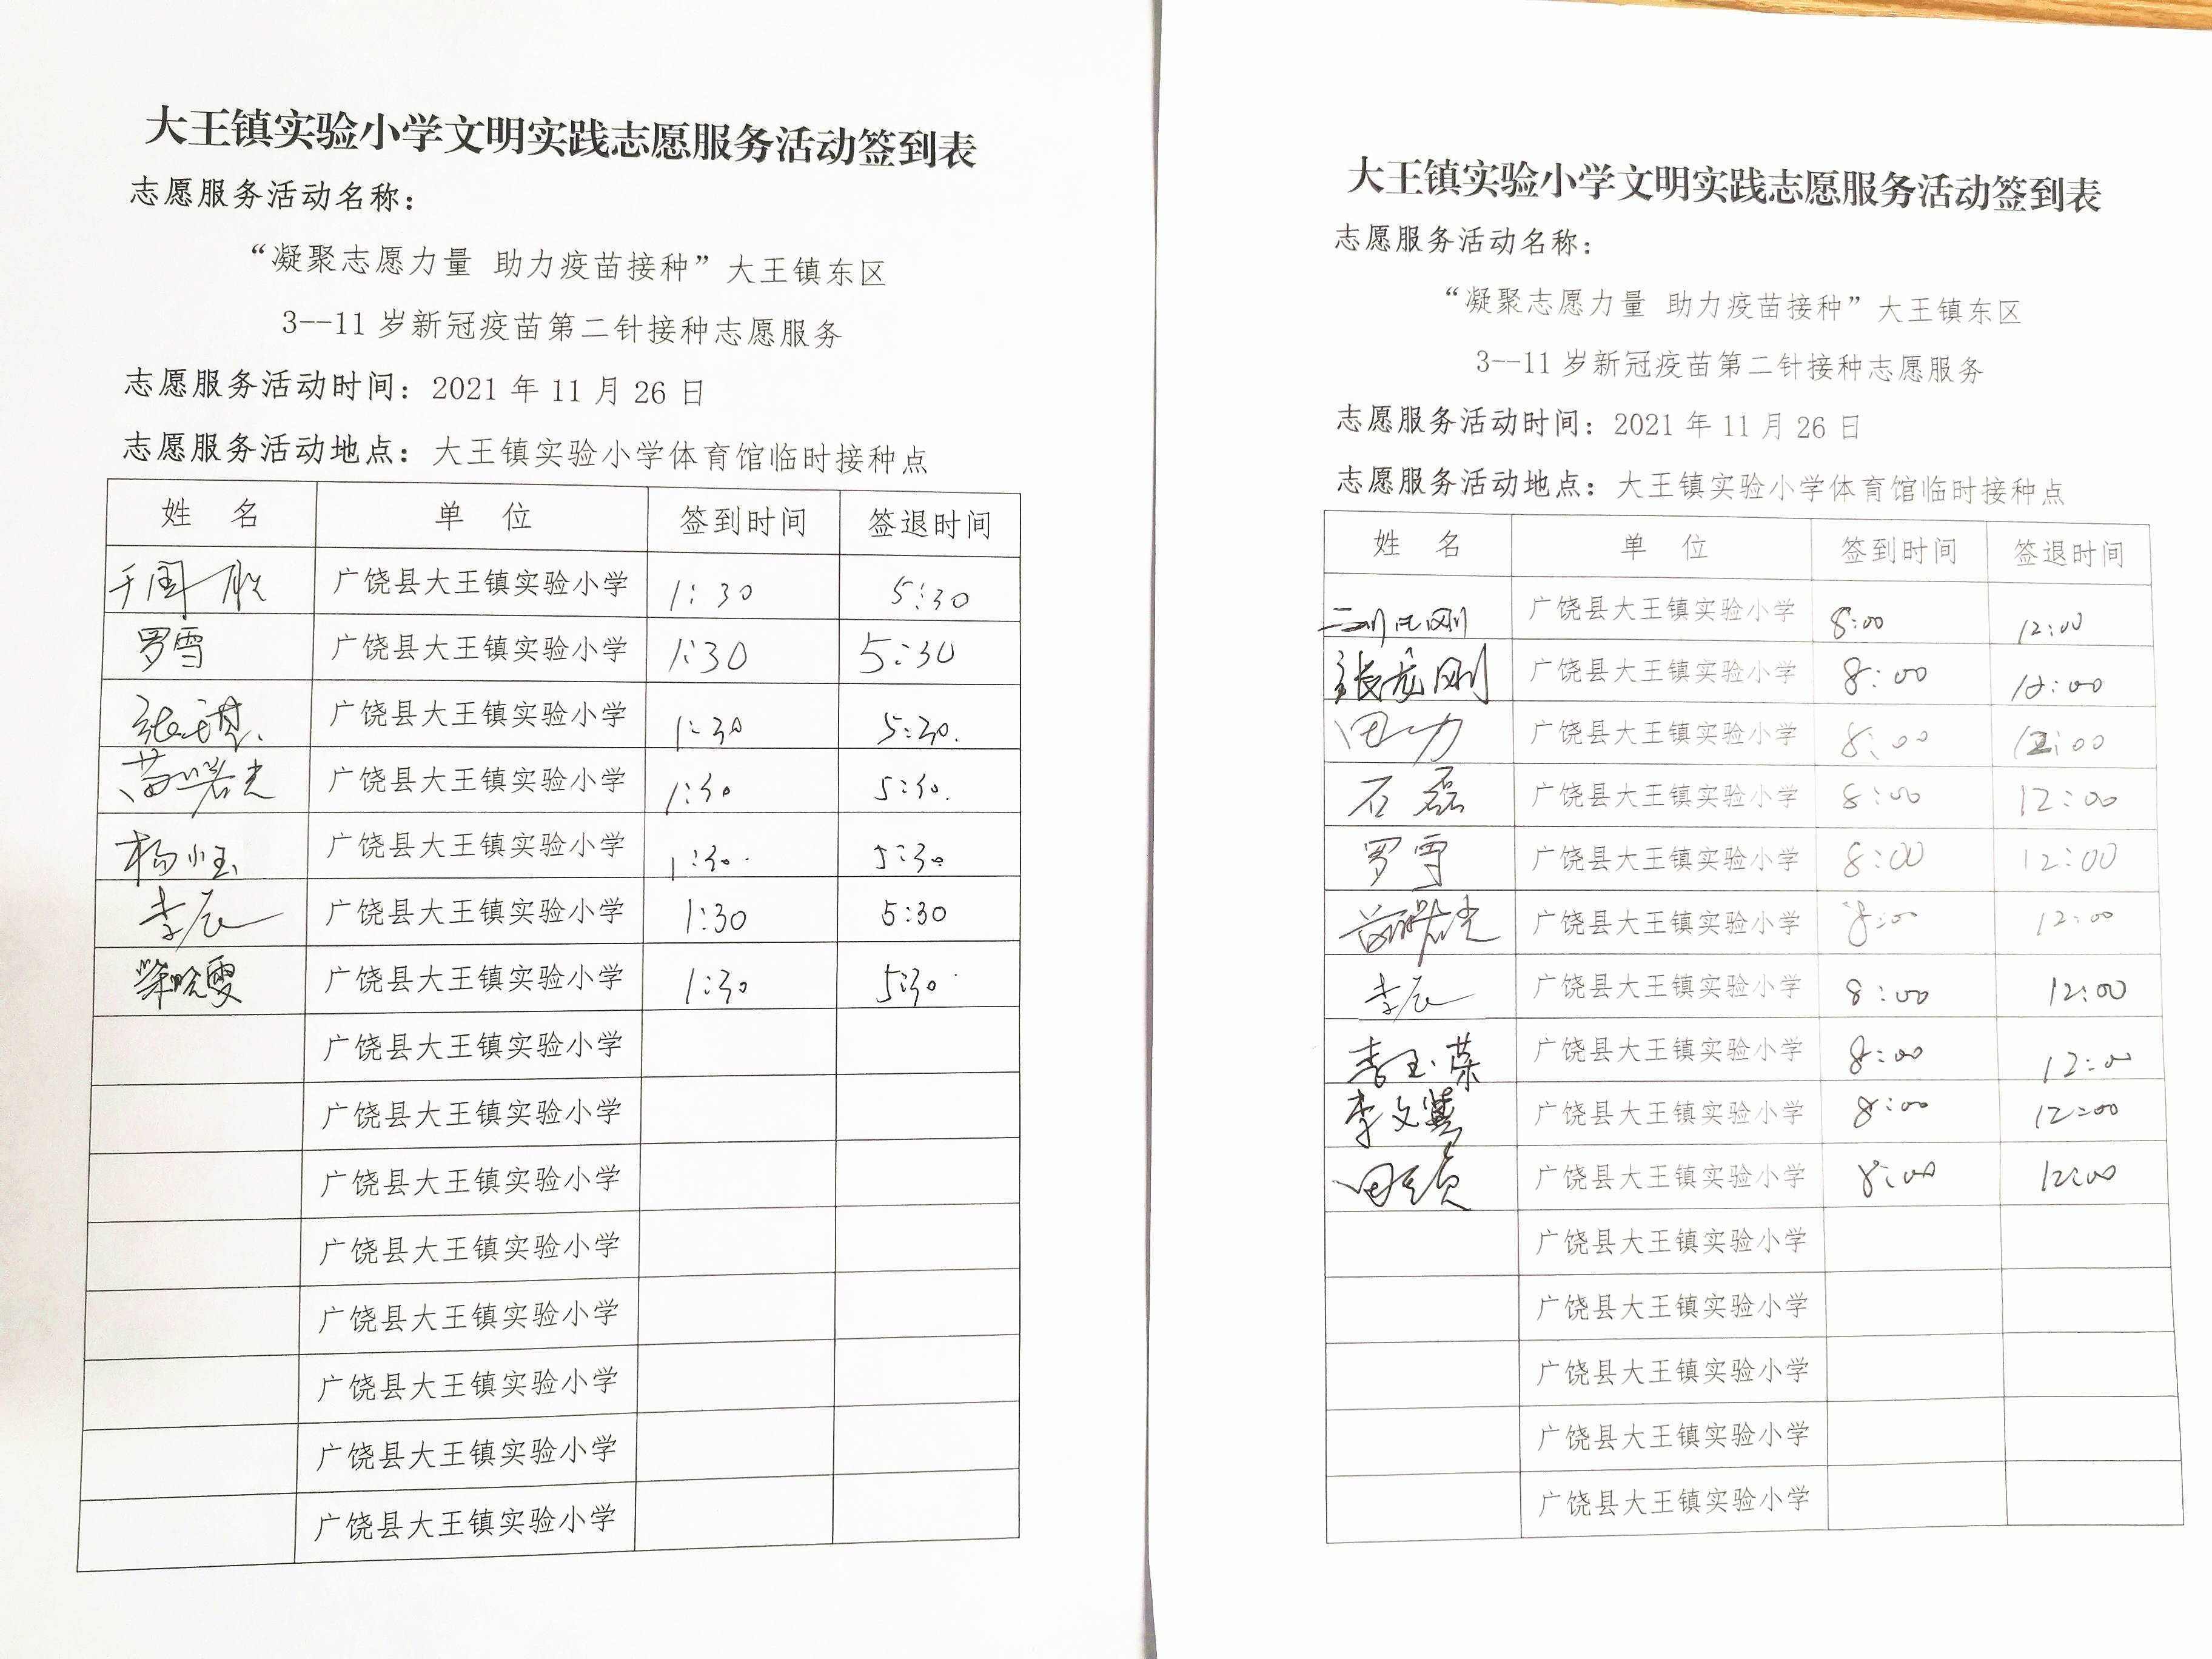 大王镇实验小学文明实践志愿服务活动签到表
志愿服务活动名称：
“凝聚志愿力量 助力疫苗接种”大王镇东区
3--11 岁新冠疫苗第二针接种志愿服务
志愿服务活动时间：2021 年 11 月 26 日
志愿服务活动地点：大王镇实验小学体育馆临时接种点
姓 名 单 位 签到时间 签退时间
广饶县大王镇实验小学 1:30 5:30
罗雪 广饶县大王镇实验小学 1:30 5:30
广饶县大王镇实验小学 1:30 5:30.
广饶县大王镇实验小学 1:30 5:30.
广饶县大王镇实验小学 1:30. 5:30
李辰 广饶县大王镇实验小学 1:30 5:30
广饶县大王镇实验小学 1:30 5:30
广饶县大王镇实验小学
广饶县大王镇实验小学
广饶县大王镇实验小学
广饶县大王镇实验小学
广饶县大王镇实验小学
广饶县大王镇实验小学
广饶县大王镇实验小学
广饶县大王镇实验小学
大王镇实验小学文明实践志愿服务活动签到表
志愿服务活动名称：
“凝聚志愿力量 助力疫苗接种”大王镇东区
3--11 岁新冠疫苗第二针接种志愿服务
志愿服务活动时间：2021 年 11 月 26 日
志愿服务活动地点：大王镇实验小学体育馆临时接种点
姓 名 单 位 签到时间 签退时间
广饶县大王镇实验小学 8:00 12:00
张龙刚 广饶县大王镇实验小学 8:00 12:00
田力 广饶县大王镇实验小学 8:00 12:00
石磊 广饶县大王镇实验小学 8:00 12:00
罗雪 广饶县大王镇实验小学 8:00 12:00
广饶县大王镇实验小学 8:00 12:00
李辰 广饶县大王镇实验小学 8:00 12:00
李玉荣 广饶县大王镇实验小学 8:00 12:00
广饶县大王镇实验小学 8:00 12:00
广饶县大王镇实验小学 8:00 12:00
广饶县大王镇实验小学
广饶县大王镇实验小学
广饶县大王镇实验小学
广饶县大王镇实验小学
广饶县大王镇实验小学